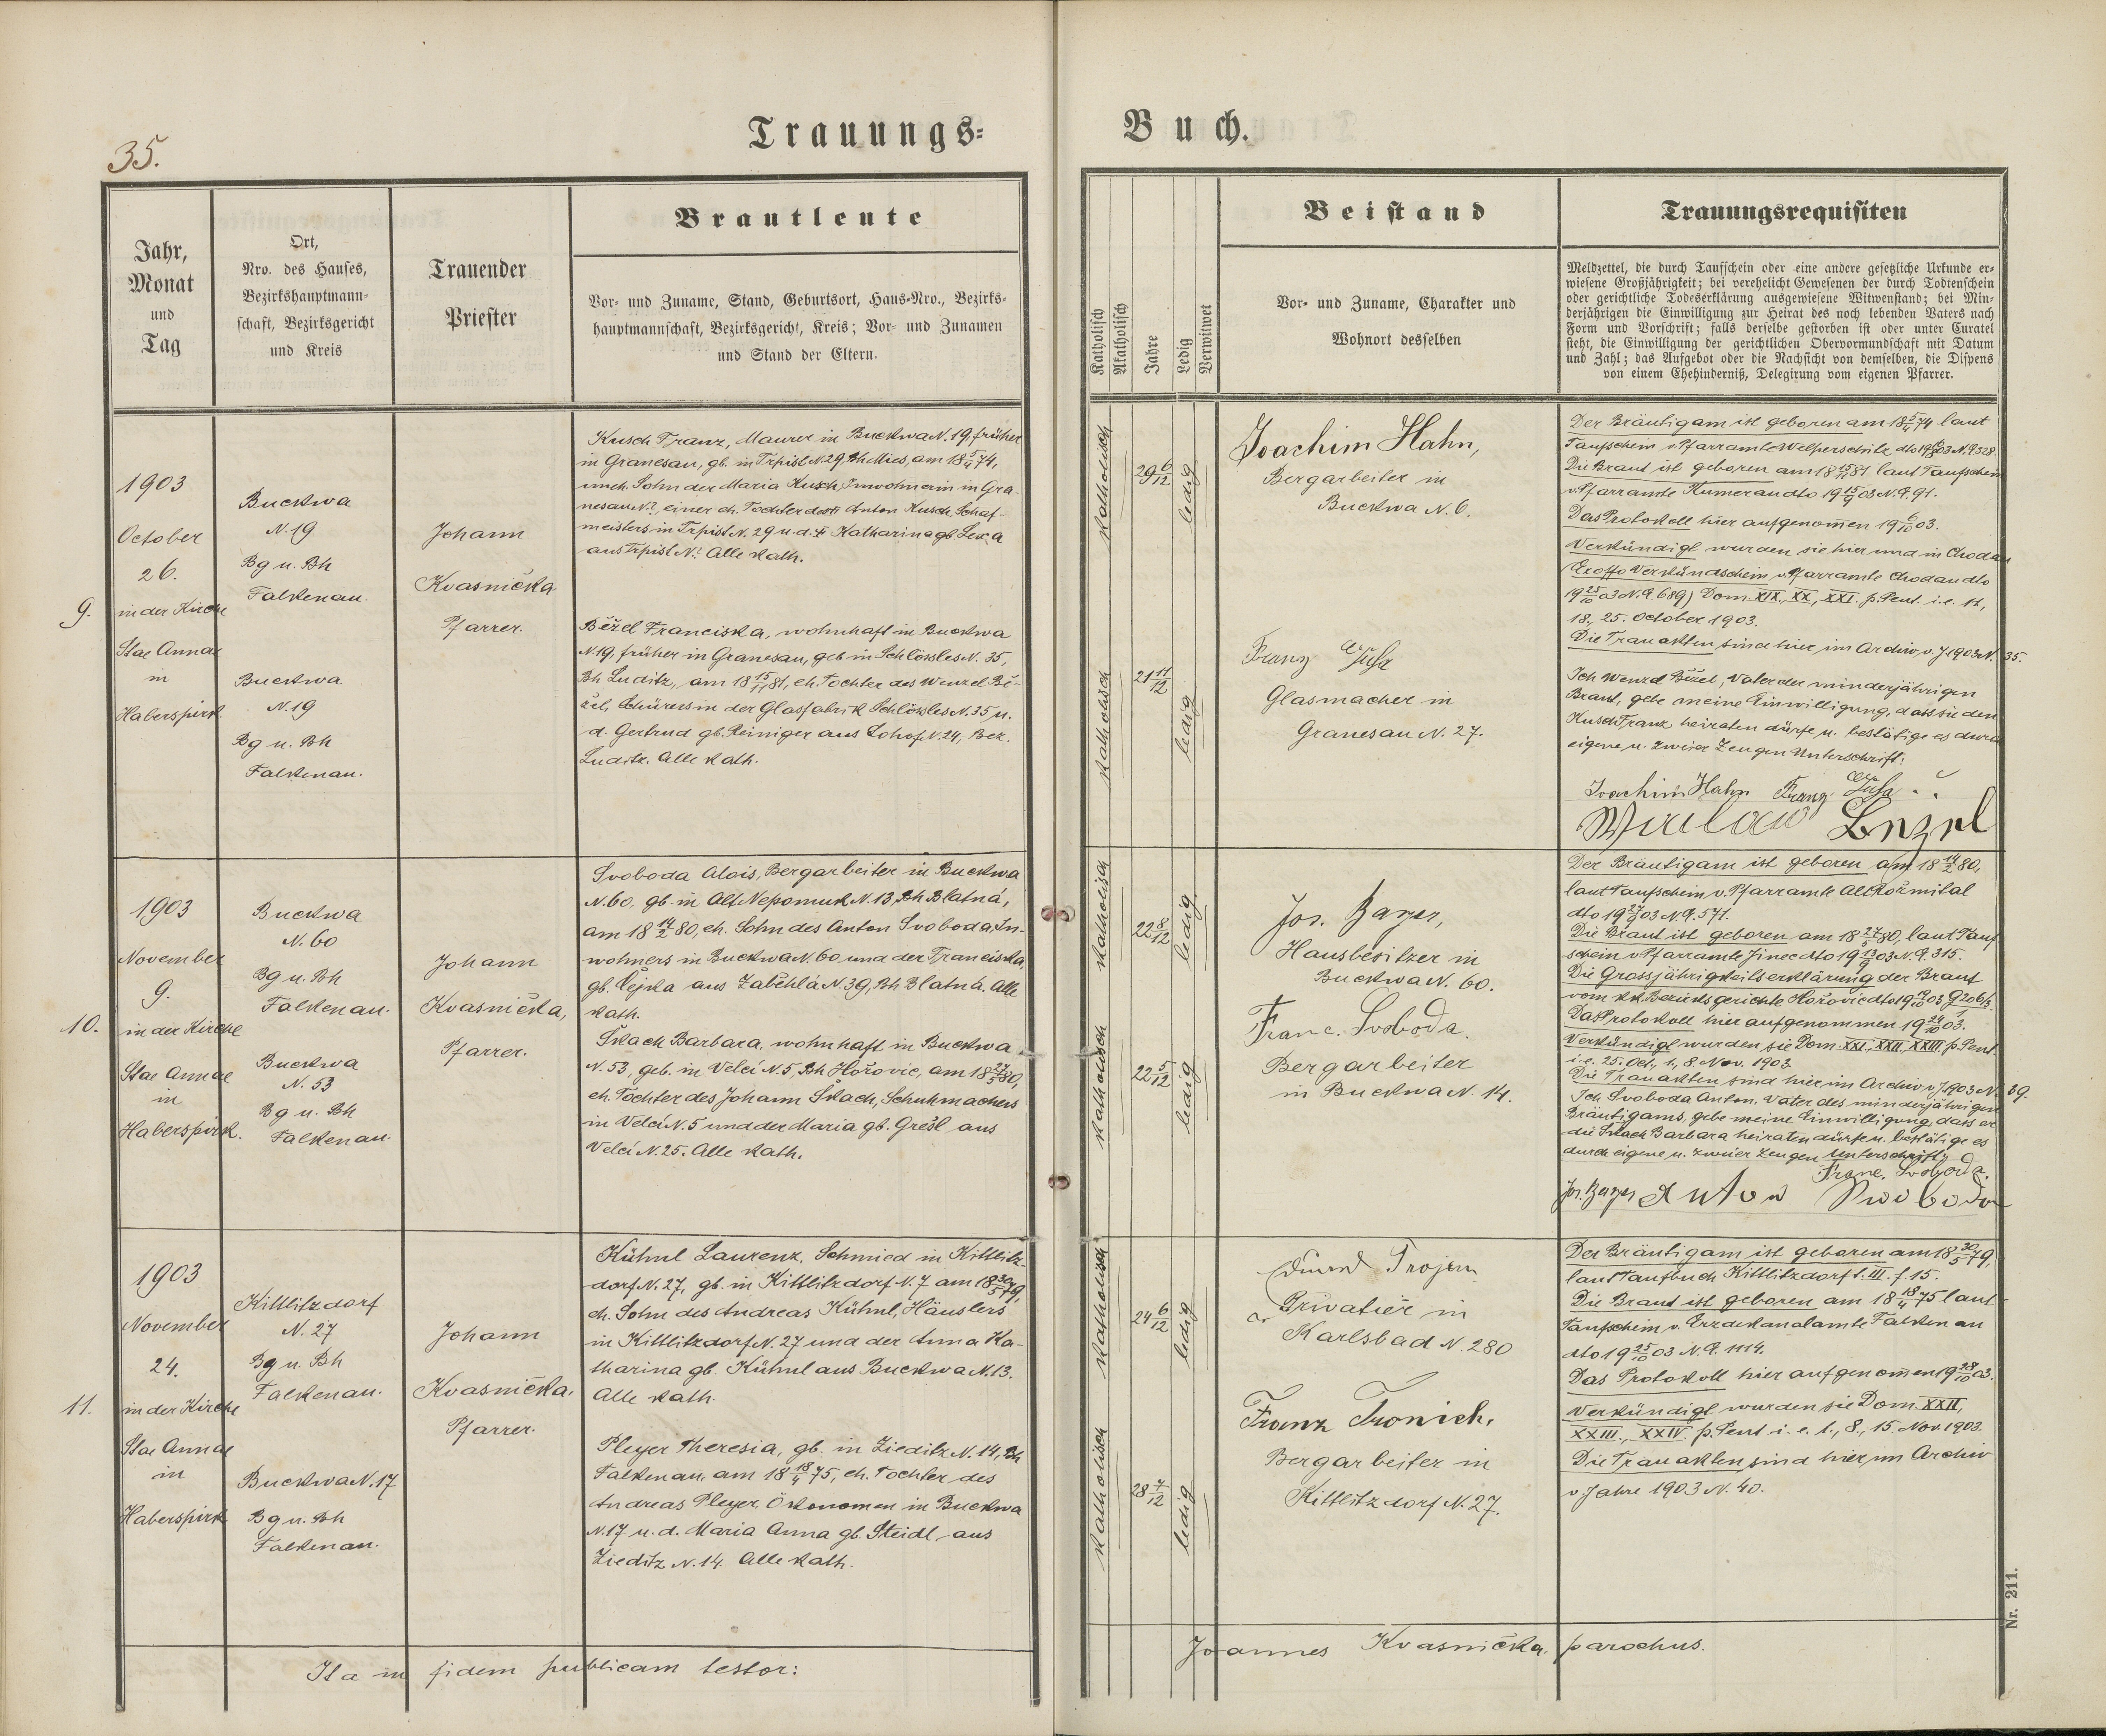 35.
Trauungs-
Buch.
Jahr,
Monat
und
Tag
Ort,
Nro. des Hauses,
Bezirkshauptmann-
schaft, Bezirksgericht
und Kreis
Trauender
Priester
Brautleute
Vor- und Zuname, Stand, Geburtsort, Haus-Nro., Bezirks-
hauptmannschaft, Bezirksgericht, Kreis; Vor- und Zunamen
und Stand der Eltern.
Katholisch
Akatholisch
Jahre
Ledig
Verwitwet
Beistand
Vor- und Zuname, Charakter und
Wohnort desselben
Trauungsrequisiten
Meldzettel, die durch Taufschein oder eine andere gesetzliche Urkunde er-
wiesene Großjährigkeit; bei verehelicht Gewesenen der durch Todtenschein
oder gerichtliche Todeserklärung ausgewiesene Witwenstand; bei Min-
derjährigen die Einwilligung zur Heirat des noch lebenden Vaters nach
Form und Vorschrift; falls derselbe gestorben ist oder unter Curatel
steht, die Einwilligung der gerichtlichen Obervormundschaft mit Datum
und Zahl; das Aufgebot oder die Nachsicht von demselben, die Dispens
von einem Ehehinderniß, Delegirung vom eigenen Pfarrer.
9.
1903
October
26.
in der Kirche
Stae Annae
in
Haberspirk
Buckwa
N. 19
Bg u. Bh
Falkenau.
Buckwa
N. 19
Bg u. Bh
Falkenau.
Johann
Kvasnička
Pfarrer.
Kusch Franz, Maurer in Buckwa N. 19, früher
in Granesau, gb. in Trpist N. 29 Bh Mies, am 18 5/4 74,
uneh. Sohn der Maria Kusch, Inwohnerin in Gra-
nesau N.?, einer eh. Tochter des Anton Kusch, Schaf-
meisters in Trpist N. 29 u. d. Katharina gb Lexa
aus Trpist N.? Alle kath.
Běžel Franciska, wohnhaft in Buckwa
N. 19, früher in Granesau, geb in Schlössles N. 35,
Bh Luditz, am 18 15/11 81, eh. Tochter des Wenzel Bě-
žel, Schürers in der Glasfabrik Schlössles N. 35 u.
d. Gertrud gb. Reiniger aus Lohof N. 24, Bez.
Luditz. Alle kath.
katholisch
29 6/12
ledig
katholisch
21 11/12
ledig
Joachim Hahn,
Bergarbeiter in
Buckwa N. 6.
Franz
Glasmacher in
Granesau N. 27.
Der Bräutigam ist geboren am 18 5/4 74 laut
Taufschein v. Pfarramte Welperschitz dto N. E. 528.
Die Braut ist geboren am 18 15/11 81 laut Taufschein
v. Pfarramte Kumerau dto 19 15/9 03 N. E. 91.
Das Protokoll hier aufgenomen 19 6/10 03.
Verkündigt wurden sie hier und in Chodau
(Exoffo Verkündschein v. Pfarramte Chodau dto
19 25/10 03 N. E. 689) Dom. XIX, XX, XXI. p. Pent. i. e. 11,
18., 25. October 1903.
Die Trauakten sind hier im Archiv v. J. 1903 N. 35.
Ich Wenzel Běžel, Vater der minderjährigen
Braut, gebe meine Einwilligung, dass sie den
Kusch Franz heiraten dürfe u. bestätige es durch
eigene u. zweier Zeugen Unterschrift:
Joachim Hahn Franz
10.
1903
November
9.
in der Kirche
Stae Annae
in
Haberspirk.
Buckwa
N. 60
Bg u. Bh
Falkenau.
Buckwa
N. 53
Bg u. Bh
Falkenau.
Johann
Kvasnička,
Pfarrer.
Svoboda Alois, Bergarbeiter in Buckwa
N. 60, gb. in Alt Nepomuk N. 13, Bh Blatná,
am 18 14/2 80, eh. Sohn des Anton Svoboda, In-
wohners in Buckwa N. 60 und der Franciska,
gb. Čejka aus Zaběhlá N. 39, Bh Blatná. Alle
kath.
Škach Barbara, wohnhaft in Buckwa
N. 53, geb. in Velcí N. 5, Bh Hořovic, am 18 27/5 80,
eh. Tochter des Johann Škach, Schuhmachers
in Velcí N. 5 und der Maria gb. Grešl aus
Velcí N. 25. Alle kath.
katholisch
22 8/12
ledig
katholisch
22 5/12
ledig
Jos. Bayer,
Hausbesitzer in
Buckwa N. 60.
Franc. Svoboda.
Bergarbeiter
in Buckwa N. 14.
Der Bräutigam ist geboren am 18 14/2 80,
laut Taufschein v. Pfarramte Alt Rožmital
dto 19 27/9 03 N. E. 571.
Die Braut ist geboren am 18 27/5 80, laut Tauf-
schein v. Pfarramte Jinec dto 19 13/9 03 N. E. 315.
Die Grossjährigkeitserklärung der Braut
vom kk. Bezirksgerichte Hořovic dto 19 19/10 03
Das Protokoll hier aufgenommen 19 24/10 03.
Verkündigt wurden sie Dom. XXI., XXII, XXIII p. Pent.
i. e. 25. Oct., 1., 8. Nov. 1903.
Die Trauakten sind hier im Archiv v. J. 1903 N. 39.
Ich Svoboda Anton, Vater des minderjährigen
Bräutigams, gebe meine Einwilligung, dass er
die Škach Barbara heiraten dürfe u. bestätige es
durch eigene u. zweier Zeugen Unterschrift:
Franc. Svoboda.
Jos. Bayer Anton Swoboda
11.
1903
November
24.
in der Kirche
Stae Annae
in
Haberspirk
Kittlitzdorf
N. 27
Bg u. Bh
Falkenau.
Buckwa N. 17
Bg u. Bh
Falkenau.
Johann
Kvasnička,
Pfarrer.
Kühnl Laurenz, Schmied in Kittlitz-
dorf N. 27, gb. in Kittlitzdorf N. 7 am 18 30/5 79,
eh. Sohn des Andreas Kühnl, Häuslers
in Kittlitzdorf N. 27 und der Anna Ka-
tharina gb. Kühnl aus Buckwa N. 13.
Alle kath.
Pleyer Theresia, gb. in Zieditz N. 14, Bh
Falkenau, am 18 18/4 75, eh. Tochter des
Andreas Pleyer, Ökonomen in Buckwa
N. 17 u. d. Maria Anna gb. Steidl, aus
Zieditz N. 14. Alle kath.
katholisch
24 6/12
ledig
katholisch
28 7/12
ledig
Eduard Trojan
Privatier in
Karlsbad N. 280
Franz Tronich,
Bergarbeiter in
Kittlitzdorf N. 27.
Der Bräutigam ist geboren am 18 30/5 79,
laut Taufbuch Kittlitzdorf t. III. f. 15.
Die Braut ist geboren am 18 18/4 75 laut
Taufschein v. Erzdekanalamte Falkenau
dto 19 25/10 03 N. E. 1114.
Das Protokoll hier aufgenomen 19 28/10 03.
Verkündigt wurden sie Dom. XXII,
XXIII., XXIV. p. Pent. i. e. 1., 8., 15. Nov. 1903.
Die Trauakten sind hier im Archiv
v. Jahre 1903 N. 40.
Nr. 211.
Ita in fidem publicam testor:
Joannes Kvasnička, parochus.